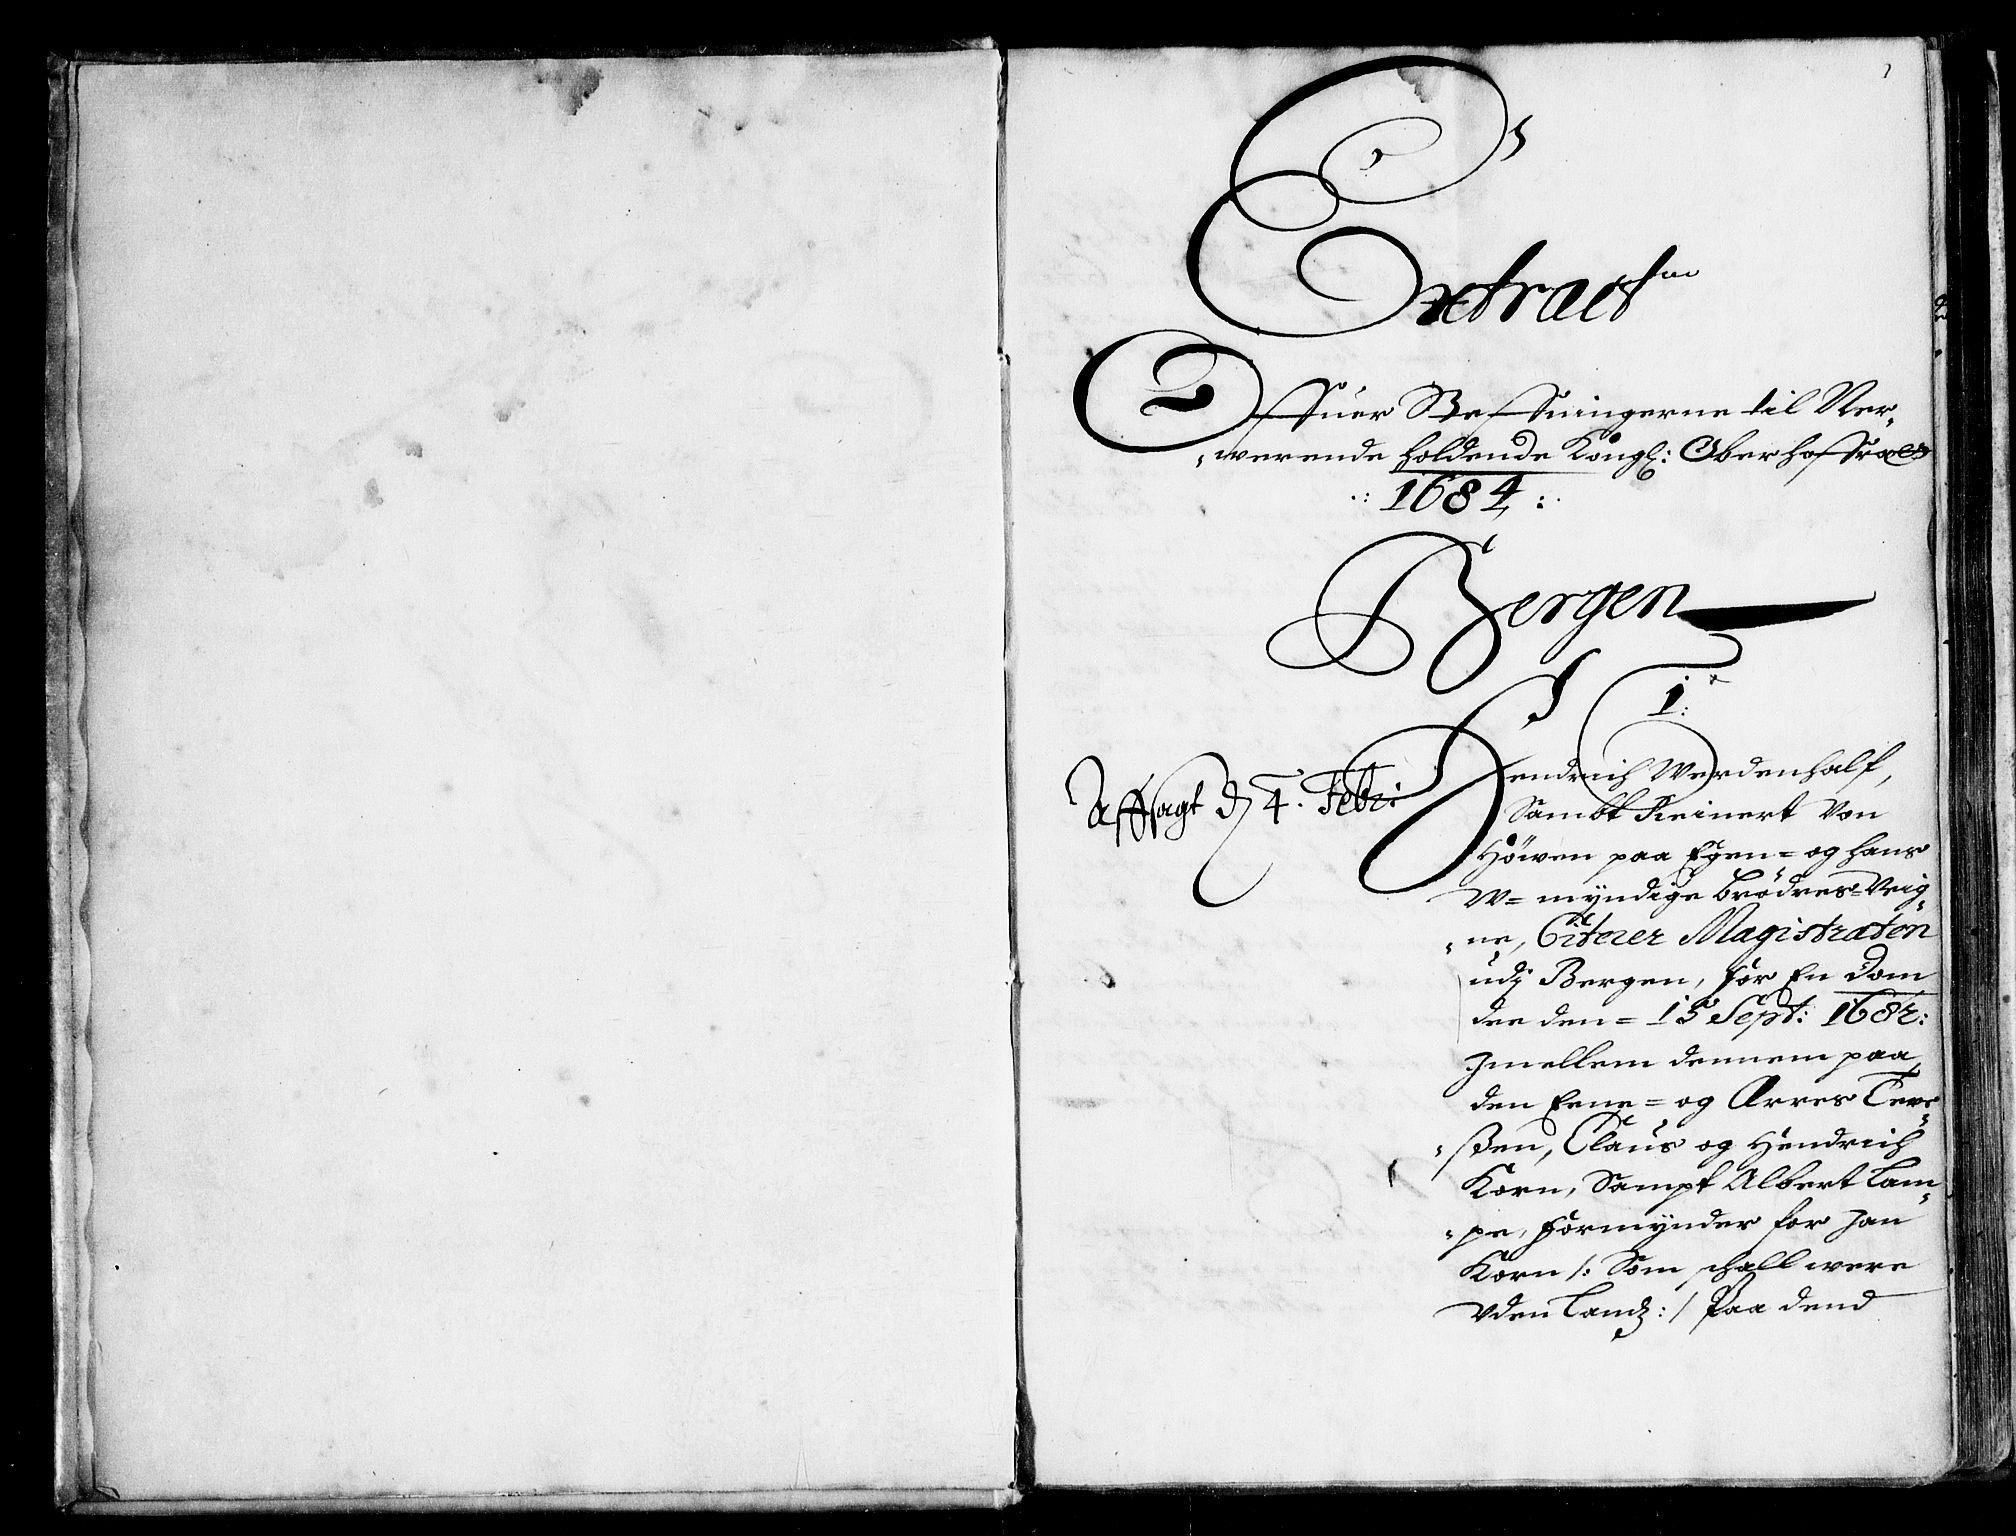 1
Extract
Offuer Steffningerne til Ner„
„werende holdende Kongl: Oberhoffræt
.: 1684 :.
Bergen
1:
Affsagt d 4. Febr:
Hendrich Werdenhalf,
Sambt Reinert Von
Höwen paa Egen= og hans
W= myndige Brödres Veig„
„ne, Citerer Magistraten
udj Bergen, for En Dom
dee den= 15 Sept: 1682:
Jmellem dennem paa
den Eene= og Arres
„ßen, Claus og Hendrich
Korn, Sampt Albert Lam„
„pe, Formÿnder for Jan
Korn /: Som schall were
Vden Landz :/ Paa dend